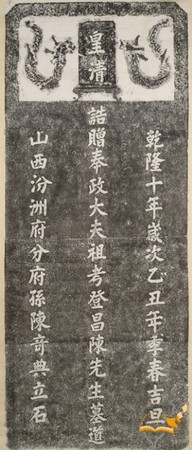 皇清
乾隆十年歲次乙丑年季春吉旦
誥贈奉政大夫祖考登昌陳先生墓道
山西汾洲府分府孫陳奇典立石